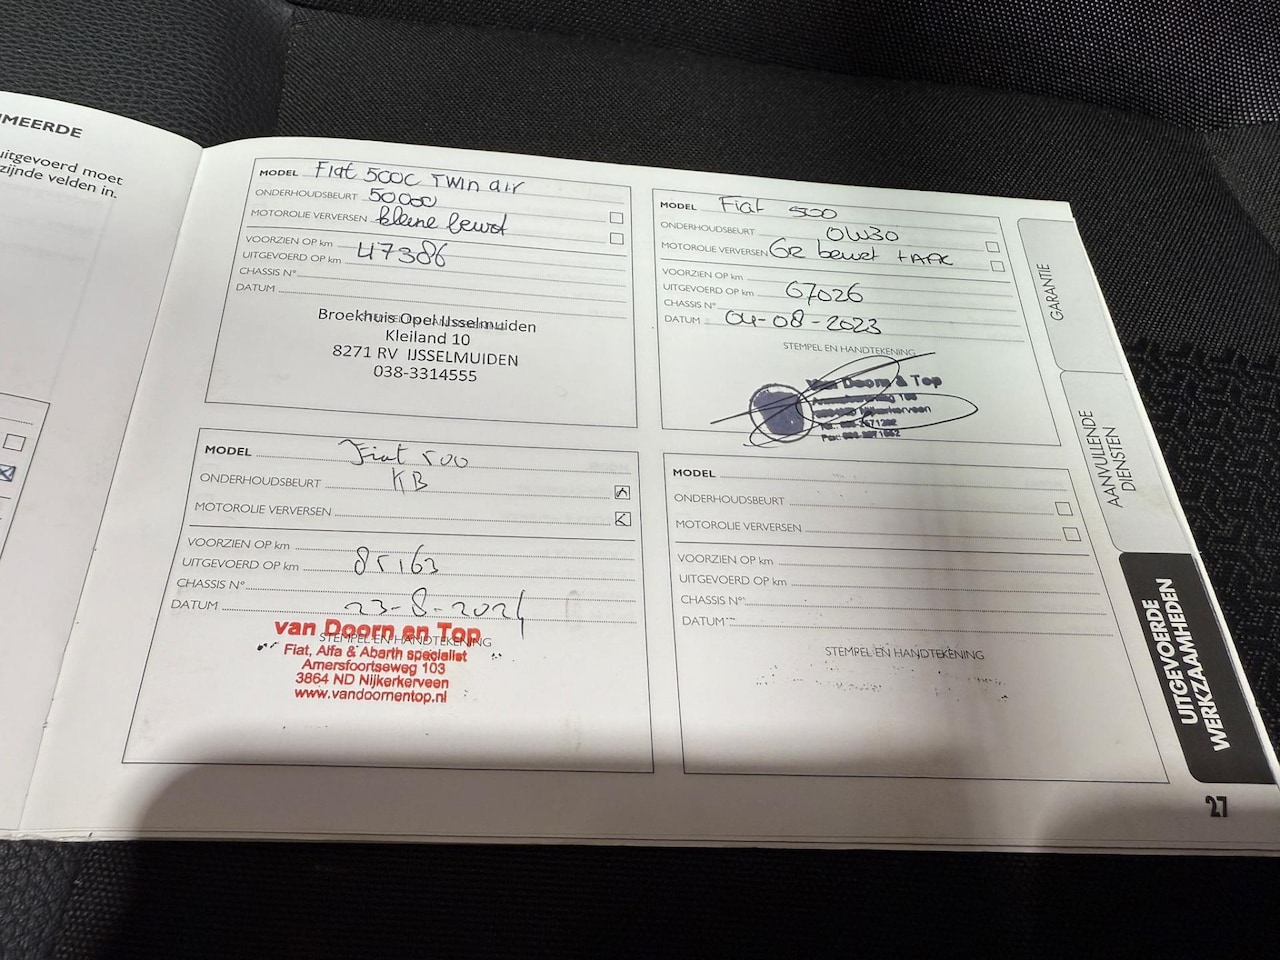 MEERDE
uitgevoerd moet
zijnde velden in.
MODEL Fiat 500C Twin air
ONDERHOUDSBEURT 50000
MOTOROLIE VERVERSEN kleine beurt
VOORZIEN OP km
UITGEVOERD OP km 47386
CHASSIS N°
DATUM
Broekhuis Opel IJsselmuiden
Kleiland 10
8271 RV IJSSELMUIDEN
038-3314555
MODEL Fiat 500
ONDERHOUDSBEURT 0W30
MOTOROLIE VERVERSEN GR beurt +AFK
VOORZIEN OP km
UITGEVOERD OP km 67026
CHASSIS N°
DATUM 04-08-2023
STEMPEL EN HANDTEKENING
van Doorn & Top
Nijkerkerveen
MODEL Fiat 500
ONDERHOUDSBEURT KB
MOTOROLIE VERVERSEN
VOORZIEN OP km
UITGEVOERD OP km 85163
CHASSIS N°
DATUM 23-8-2024
STEMPEL EN HANDTEKENING
van Doorn en Top
Fiat, Alfa & Abarth specialist
Amersfoortseweg 103
3864 ND Nijkerkerveen
www.vandoornentop.nl
MODEL
ONDERHOUDSBEURT
MOTOROLIE VERVERSEN
VOORZIEN OP km
UITGEVOERD OP km
CHASSIS N°
DATUM
STEMPEL EN HANDTEKENING
GARANTIE
AANVULLENDE
DIENSTEN
UITGEVOERDE
WERKZAAMHEDEN
27